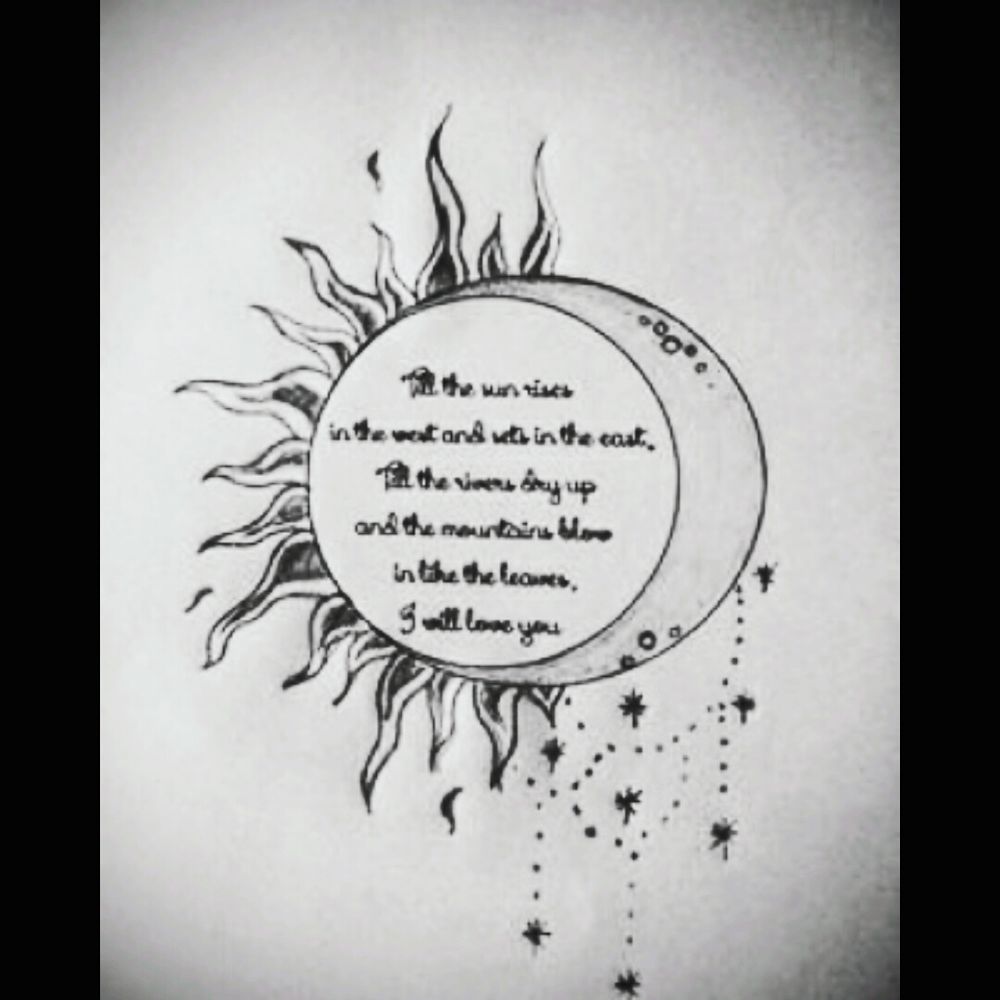 Till the sun rises
in the west and sets in the east.
Till the rivers dry up
and the mountains blow
in like the leaves.
I will love you